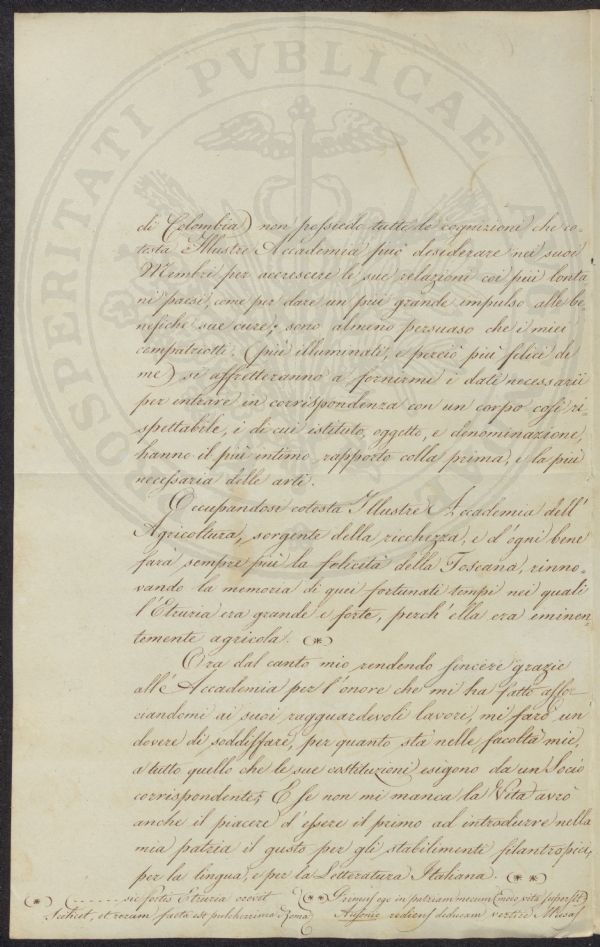 PROSPERITATI PVBLICAE AV
di Colombia) non possiedo tutte le cognizioni che co-
testa Illustre Accademia può desiderare nei suoi
Membri per accrescere le sue relazioni coi più lonta
ni paesi, come per dare un più grande impulso alle be
nefiche sue cure; sono almeno persuaso che i miei
compatriotti (più illuminati, e perciò più felici di
me) si affretteranno a fornirmi i dati necessarii
per entrare in corrispondenza con un corpo così ri
spettabile, i di cui istituto, oggetto, e denominazione,
hanno il più intimo rapporto colla prima, e la più
necessaria delle arti.
Occupandosi cotesta Illustre Accademia dell'
Agricoltura, sorgente della ricchezza, e d'ogni bene
farà sempre più la felicità della Toscana, rinno-
vando la memoria di quei fortunati tempi nei quali
l'Etruria era grande e forte, perch'ella era eminen
temente agricola. (*)
Ora dal canto mio rendendo sincere grazie
all'Accademia per l'onore che mi ha fatto asso-
ciandomi ai suoi ragguardevoli lavori, mi farò un
dovere di soddisfare, per quanto stà nelle facoltà mie,
a tutto quello che le sue costituzioni esigono da un Socio
corrispondente; E se non mi manca la Vita avrò
anche il piacere d'essere il primo ad introdurre nella
mia patria il gusto per gli stabilimenti filantropici,
per la lingua, e per la Letteratura Italiana. (**)
(*) ........ sic fortis Etruria crevit
Scilicet, et rerum facta est pulcherrima Roma
(**) Primus ego in patriam mecum (modo vita supersit)
Ausonio rediens deducam vertice Musas